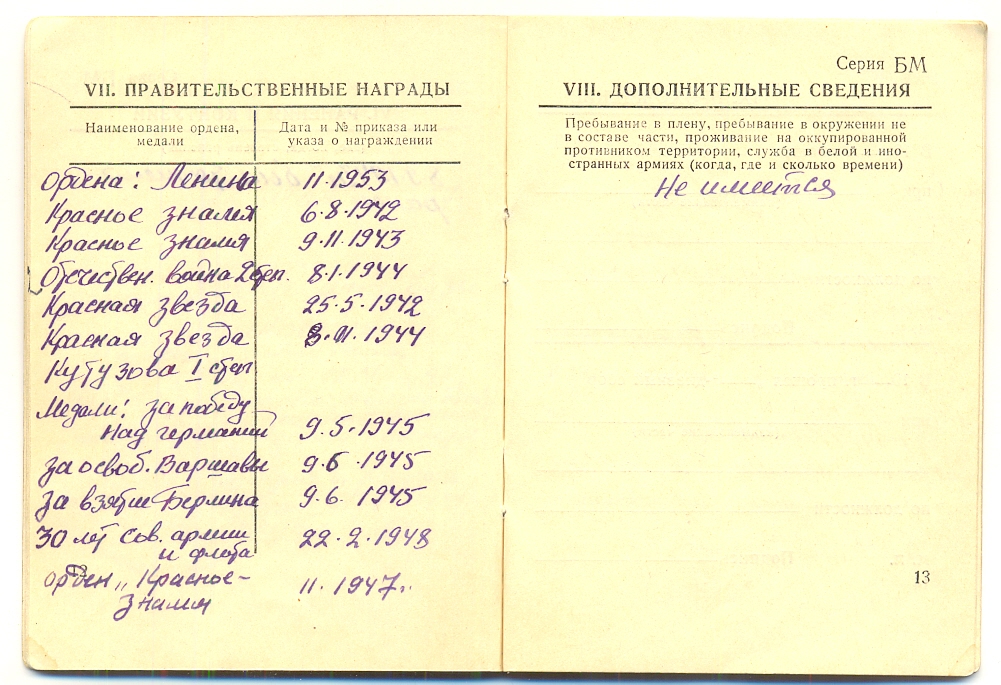 VII. ПРАВИТЕЛЬСТВЕННЫЕ НАГРАДЫ
Наименование ордена, медали
Дата и № приказа или указа о награждении
Ордена: Ленина 11.1953
Красное знамя 6.8.1942
Красное знамя 9.11.1943
Отечествен. война 2 степ. 8.1.1944
Красная звезда 25.5.1942
Красная звезда 3.11.1944
Кутузова I степ
Медали: за победу
над германией 9.5.1945
за освоб. Варшавы 9.6.1945
за взятие Берлина 9.6.1945
30 лет Сов. армии 22.2.1948
и флота
орден „Красное-
знамя 11.1947г.
Серия БМ
VIII. ДОПОЛНИТЕЛЬНЫЕ СВЕДЕНИЯ
Пребывание в плену, пребывание в окружении не
в составе части, проживание на оккупированной
противником территории, служба в белой и ино-
странных армиях (когда, где и сколько времени)
Не имеется
13